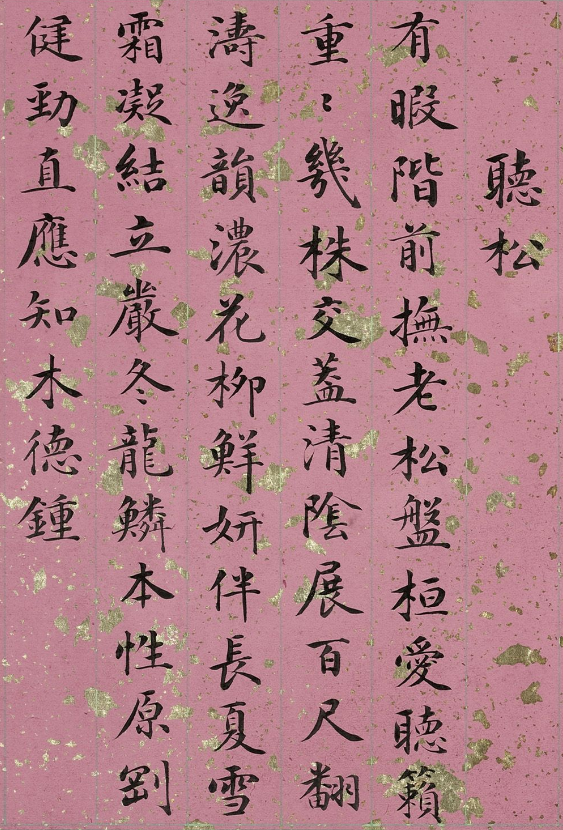 聽松
有暇階前撫老松盤桓愛聽籟
重〻幾株交蓋清陰展百尺翻
濤逸韻濃花柳鮮妍伴長夏雪
霜凝結立嚴冬龍鱗本性原劉
健勁直應知木德鍾